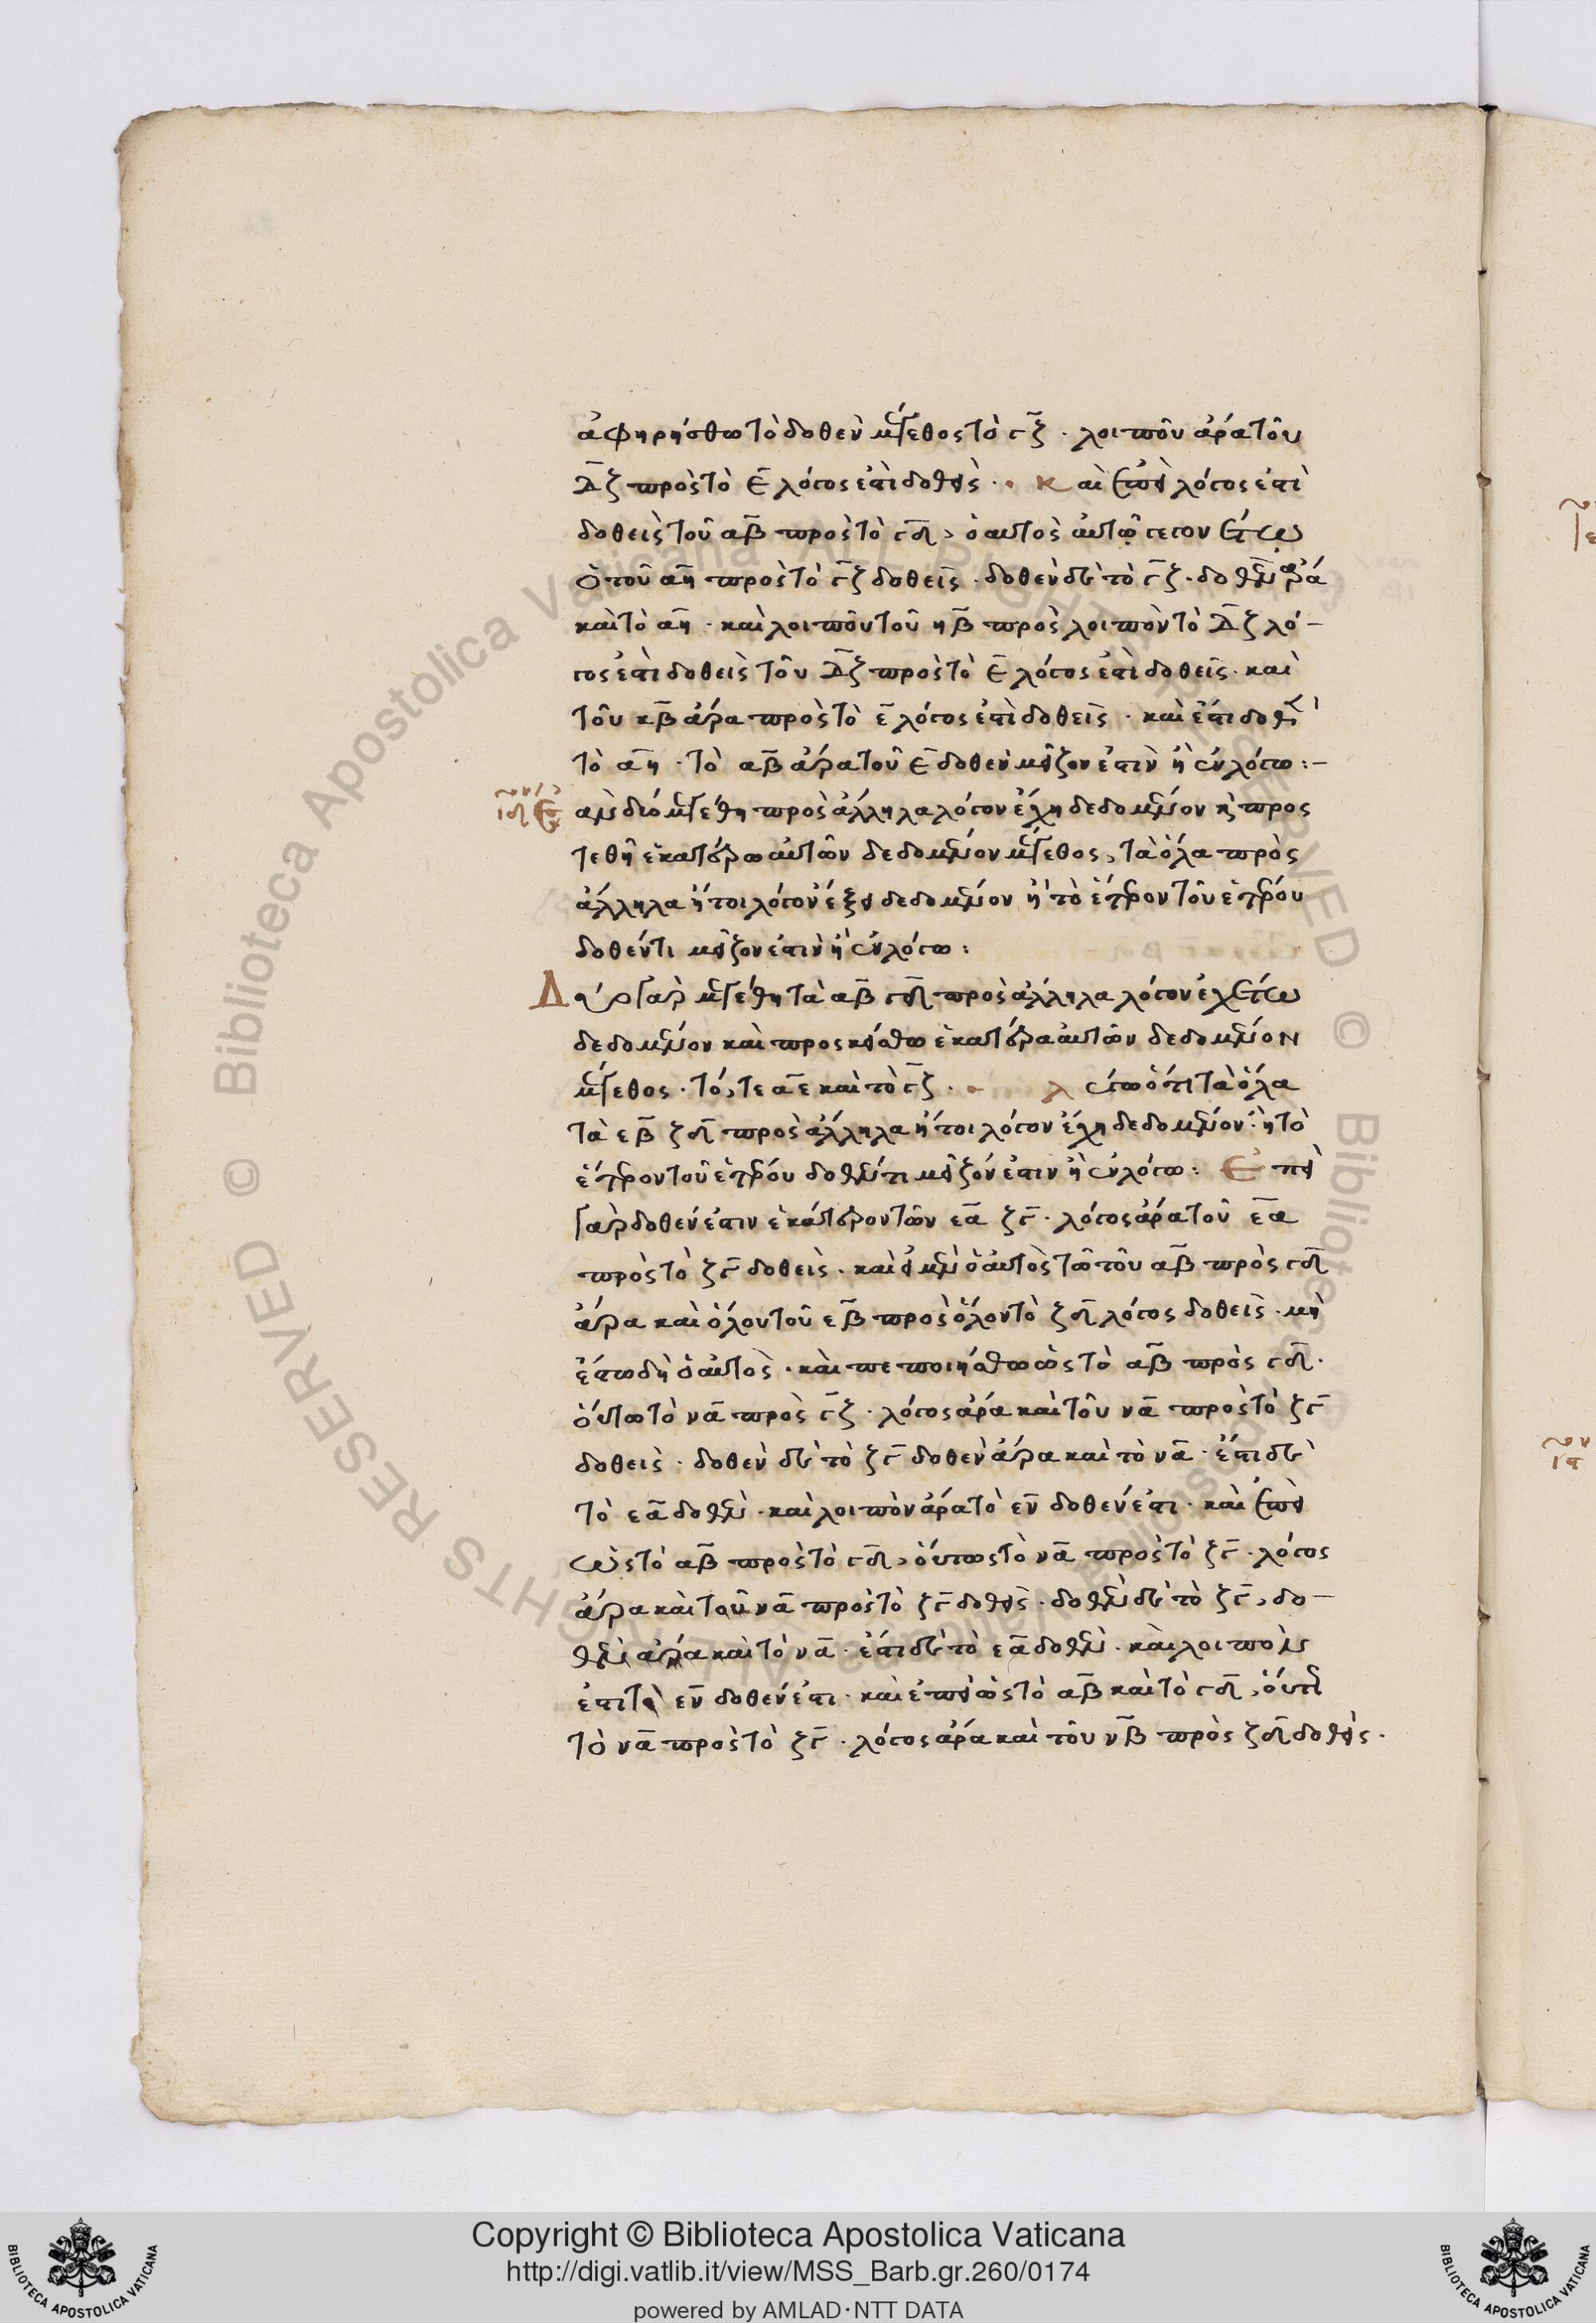 ἀφηρήσθω τὸ δοθὲν μέγεθος τὸ γζ · λοιποῦ ἄρα τοῦ
δζ πρὸς τὸ ε λόγος ἐστὶ δοθείς · καὶ ἐπεὶ λόγος ἐστὶ
δοθεὶς τοῦ αβ πρὸς τὸ γδ, ὁ αυτὸς αὐτῷ γεγονέτω
ὁ τοῦ αη πρὸς τὸ γζ δοθείς · δοθὲν δὲ τὸ γζ · δοθὲν ἄρα
καὶ τὸ αη · καὶ λοιποῦ τοῦ ηβ πρὸς λοιπὸν τὸ δζ λό-
γος ἐστὶ δοθεὶς τοῦ δζ πρὸς τὸ ε λόγος ἐστὶ δοθείς · καὶ
τοῦ κβ ἄρα πρὸς τὸ ε λόγος ἐστὶ δοθείς · καὶ ἔστι δοθὲν
τὸ αη · τὸ αβ ἄρα τοῦ ε δοθὲν μεῖζον ἐστὶν ἢ ἐν λόγω :-
ιδ Ἐὰν δύο μεγέθη πρὸς ἄλληλα λόγον ἔχη δεδομένον κ προς
τεθῆ ἑκατέρω αυτῶν δεδομένον μέγεθος, τὰ ὅλα πρὸς
ἄλληλα ἤτοι λόγον ἕξει δεδομένον ἢ τὸ ἕτερον τοῦ ἑτέρου
δοθέντι μεῖζον ἐστὶν ἢ ἐν λόγω :
Δύο γαρ μεγέθη τὰ αβ γδ πρὸς ἄλληλα λόγον ἐχέτω
δεδομένον καὶ προσκείσθω ἑκατέρα αὐτῶν δεδομένον
μέγεθος · τό, τε αε καὶ τὸ γζ · λέγω ὅτι τὰ ὅλα
τὰ εβ ζδ πρὸς ἄλληλα ἤτοι λόγον ἔχη δεδομένον · ἢ τὸ
ἕτερον τοῦ ἑτέρου δοθέντι μεῖζόν ἐστιν ἢ ἐν λόγω : Ἐπεὶ
γαρ δοθέν ἐστιν ἑκάτερον τῶν εα ζγ · λόγος ἄρα τοῦ εα
πρὸς τὸ ζγ δοθείς · καὶ εἰ μὲν ὁ αυτὸς τῶ τοῦ αβ πρὸς γδ
ἄρα καὶ ὅλου τοῦ εβ πρὸς ὅλον τὸ ζδ λόγος δοθείς · μὴ
ἔστω δὴ ὁ αὐτός · καὶ πεποιήσθω ὡς τὸ αβ πρὸς γδ ·
ὅυτω τὸ να πρὸς γζ · λόγος ἄρα καὶ τοῦ να πρὸς τὸ ζγ
δοθείς · δοθὲν δὲ τὸ ζγ δοθὲν ἄρα καὶ τὸ να · ἔστι δὲ
τὸ εα δοθὲν · καὶ λοιπὸν ἄρα τὸ εν δοθέν ἐστι · καὶ ἐπεὶ
ὡς τὸ αβ πρὸς τὸ γδ, ὅυτως τὸ να πρὸς τὸ ζγ · λόγος
ἄρα καὶ τοῦ να πρὸς τὸ ζγ δοθείς · δοθὲν δὲ τὸ ζγ, δο-
θὲν ἄρα καὶ τὸ να · ἔστι δὲ τὸ εα δοθὲν · καὶ λοιπὸν
ἐστι τὸ εν δοθέν ἐστι · καὶ ἐπεὶ ὡς τὸ αβ καὶ τὸ γδ, ὅυτω
τὸ να πρὸς τὸ ζγ · λόγος ἄρα καὶ τοῦ νβ πρὸς ζδ δοθείς ·
Copyright © Biblioteca Apostolica Vaticana
http://digi.vatlib.it/view/MSS_Barb.gr.260/0174
powered by AMLAD·NTT DATA